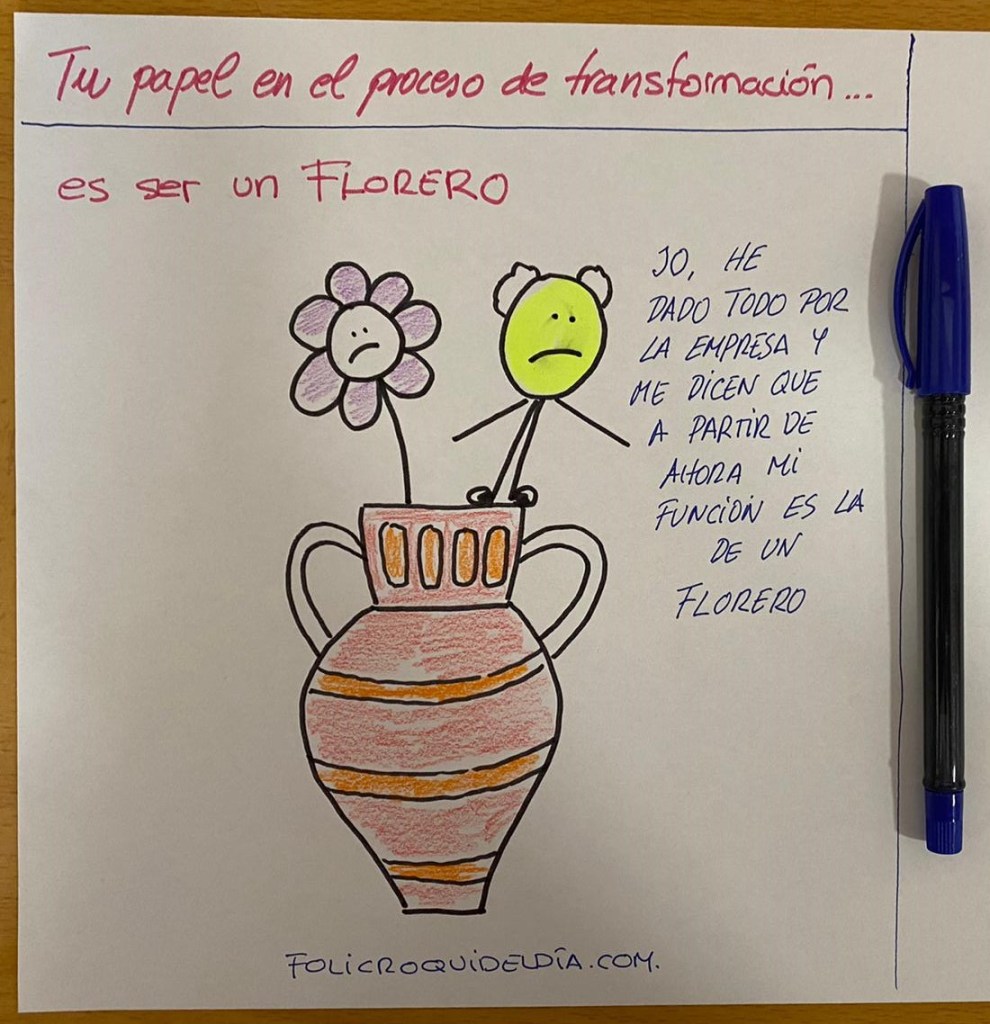 Tu papel en el proceso de transformación...
es ser un FLORERO
JO, HE
DADO TODO POR
LA EMPRESA Y
ME DICEN QUE
A PARTIR DE
AHORA MI
FUNCIÓN ES LA
DE UN
FLORERO
FOLICROQUIDELDÍA.COM.